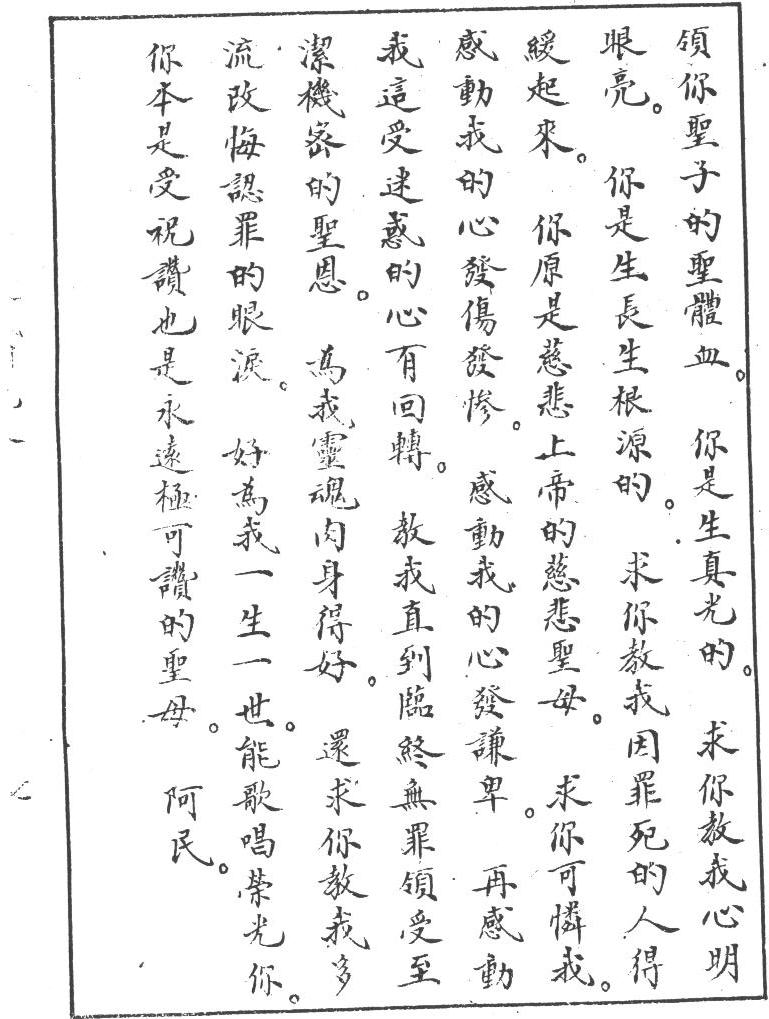 領你聖子的聖體血。 你是生真光的。 求你教我心明
眼亮。 你是生長生根源的。 求你教我因罪死的人得
緩起來。 你原是慈悲上帝的慈悲聖母。 求你可憐我。
感動我的心發傷發慘。 感動我的心發謙卑。 再感動
我這受迷惑的心有回轉。 教我直到臨終無罪領受至
潔機密的聖恩。 為我靈魂肉身得好。 還求你教我多
流改悔認罪的眼淚。 好為我一生一世。能歌唱榮光你。
你本是受祝讚也是永遠極可讚的聖母。 阿民。